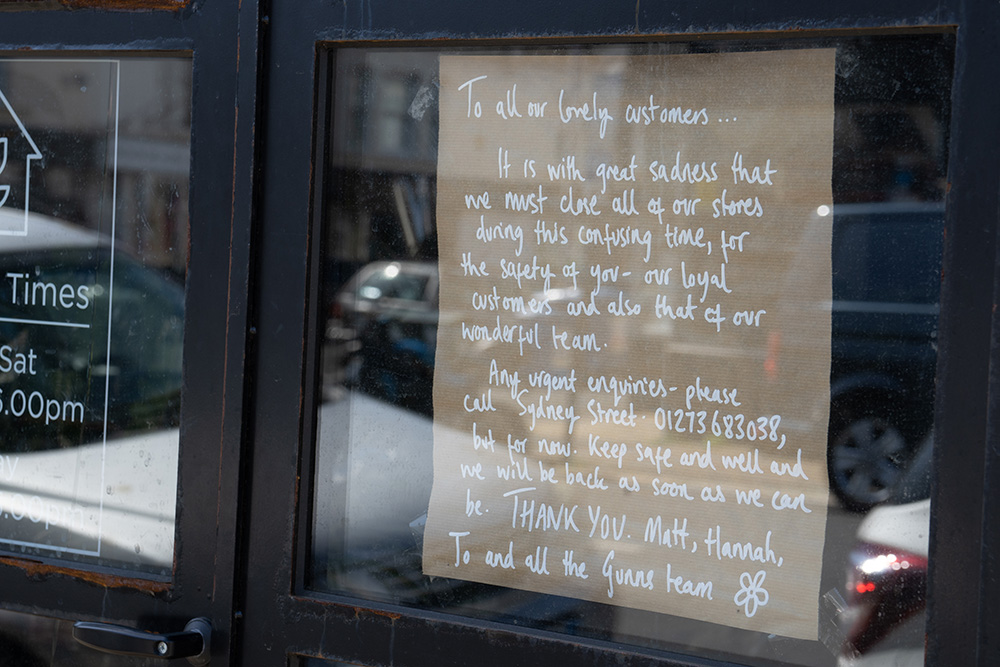 Times
Sat
6.00pm
To all our lovely customers ...
It is with great sadness that
we must close all of our stores
during this confusing time, for
the safety of you - our loyal
customers and also that of our
wonderful team.
Any urgent enquiries - please
call Sydney Street. 01273 683038,
but for now. Keep safe and well and
we will be back as soon as we can
be. THANK YOU. Matt, Hannah,
To and all the Gunns team